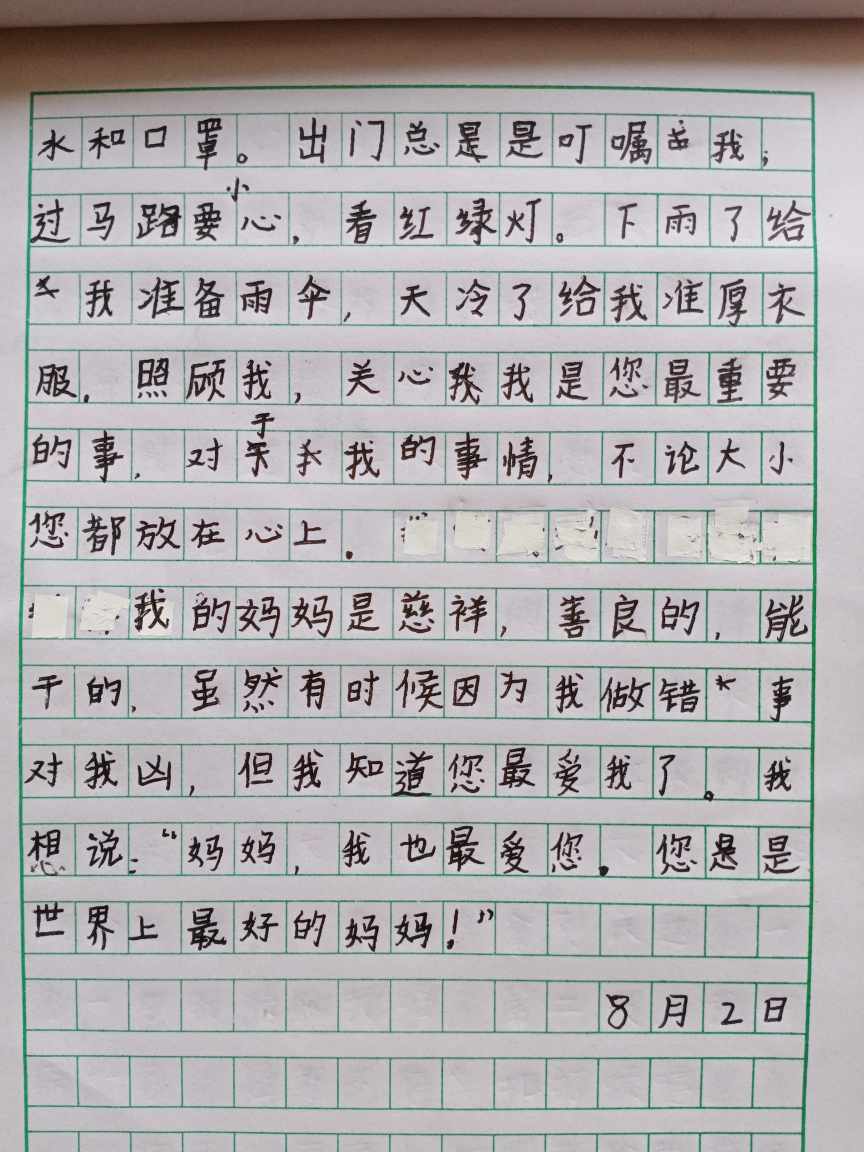 水和口罩。出门总是是叮嘱我；
过马路要小心，看红绿灯。下雨了给
我准备雨伞，天冷了给我准厚衣
服．照顾我，关心我我是您最重要
的事，对于我的事情，不论大小
您都放在心上．
我的妈妈是慈祥，善良的，能
干的，虽然有时候因为我做错事
对我凶，但我知道您最爱我了。我
想说："妈妈，我也最爱您．您是是
世界上最好的妈妈！"
8月2日